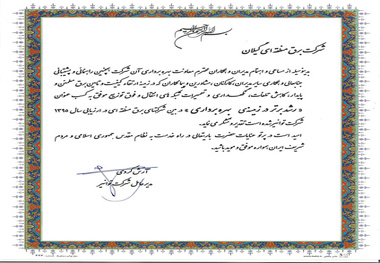 بسم الله الرحمن الرحیم
شرکت برق منطقه ای گیلان
بدینوسیله از مساعی و اهتمام مدیران و همکاران محترم معاونت بهره برداری آن شرکت همچنین راهنمائی و پشتیبانی
جنابعالی و همکاری سایر مدیران، کارکنان، مشاورین و پیمانکاران که در زمینه ارتقاء کیفیت و تامین برق مطمئن و
پایدار، کاهش تلفات، نگهداری و تعمیرات شبکه های انتقال و فوق توزیع موفق به کسب عنوان
« رتبه برتر در زمینه ی بهره برداری » در بین شرکتهای برق منطقه ای در ارزیابی سال ۱۳۹۵
شرکت توانیر شده است تقدیر و تشکر می نماید.
امید است در پرتو عنایات حضرت باریتعالی در راه خدمت به نظام مقدس جمهوری اسلامی و مردم
شریف ایران همواره موفق و موید باشید.
آرش کردی
مدیرعامل شرکت توانیر